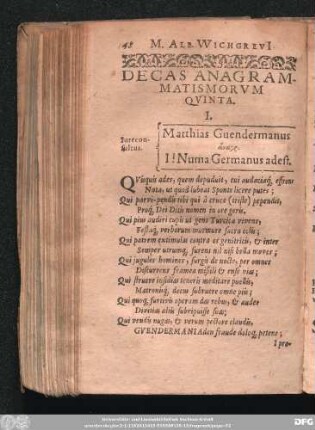 48 M. ALB. WICHGREVI
DECAS ANAGRAM-
MATISMORVM
QVINTA.
I.
Jurecon-
sultus.
Matthias Guendermanus
I! Numa Germanus adest.
QUisquis ades, quem depuduit, tui audaciaq́,
Nota, ut quod lubeat Sponte licere putes;
Qui parvi-pendis tibi qui è cruce (triste) pependit,
Proq́, Dei Ditis nomen in ore geris.
Qui pias audiri
Festaq́, verborum murmure sacra
Qui patrem extimulas contra ac genitricis, & inter
Semper utrumq́, furens nil nisi bella moves;
Qui jugules homines, surgis de nocte, per omnes
Discurrens plateas missili & ense vias;
Qui struere insidias teneris meditare puellis,
Matronisq́, decus subruere omne piis;
Qui quoq́, furtivis operam das rebus, & audes
Divitias aliis subripuisse suas;
Qui vendis nugas, & verum pectore claudis,
GVENDERMANIADen fraude doloq́, petens;